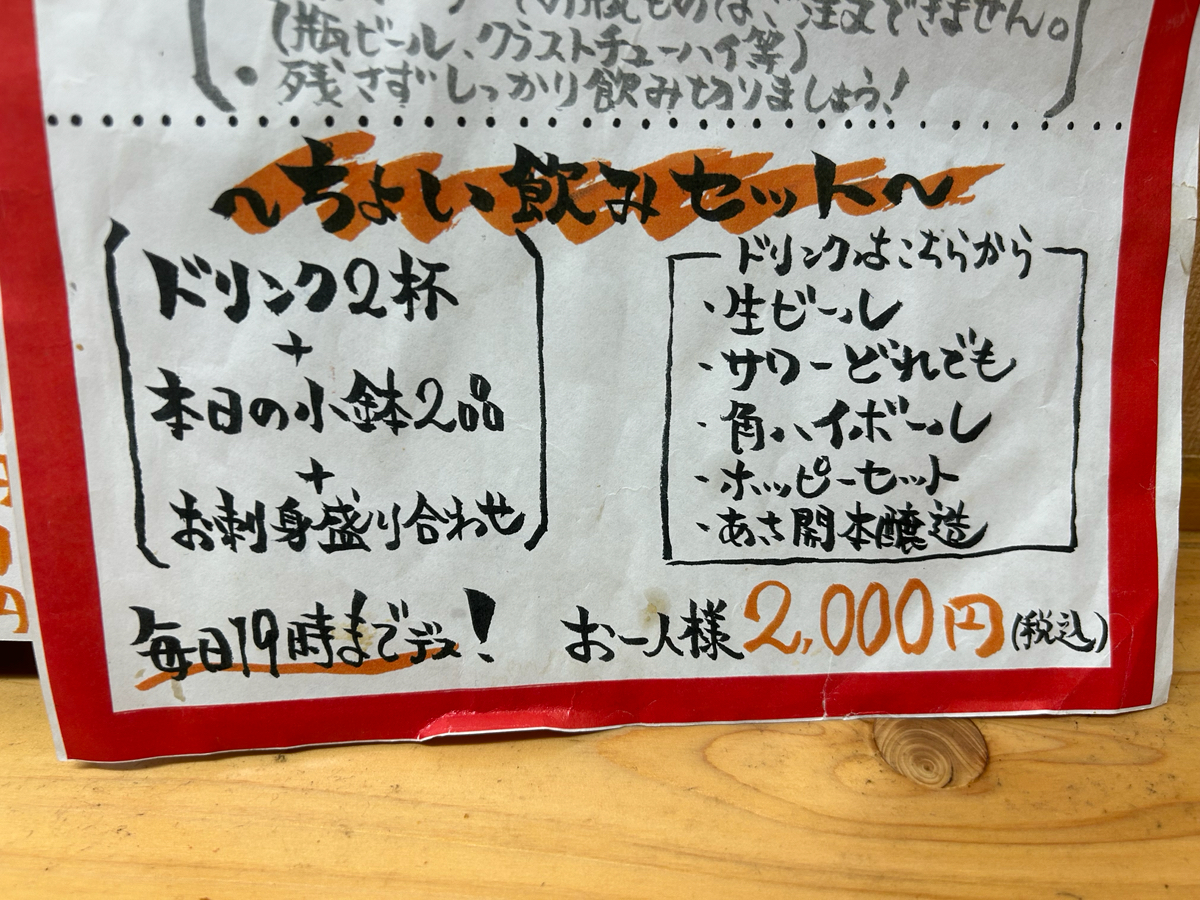 ものはご注文できません。
(瓶ビール、クラフトチューハイ等)
・残さずしっかり飲み切りましょう!
〜ちょい飲みセット〜
ドリンク2杯
+
本日の小鉢2品
+
お刺身盛り合わせ
ドリンクはこちらから
・生ビール
・サワーどれでも
・角ハイボール
・ホッピーセット
・あさ開本醸造
毎日19時までデス!
お一人様2,000円(税込)
円